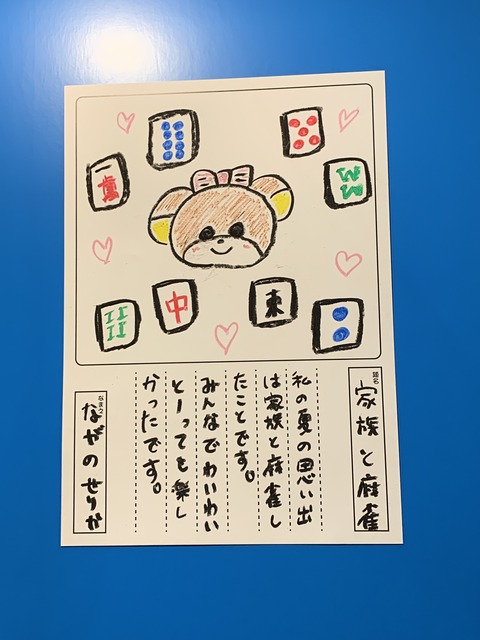 一萬
中
東
題名
家族と麻雀
私の夏の思い出
は家族と麻雀し
たことです。
みんなでわいわい
とーっても楽し
かったです。
なまえ
ながのせりか